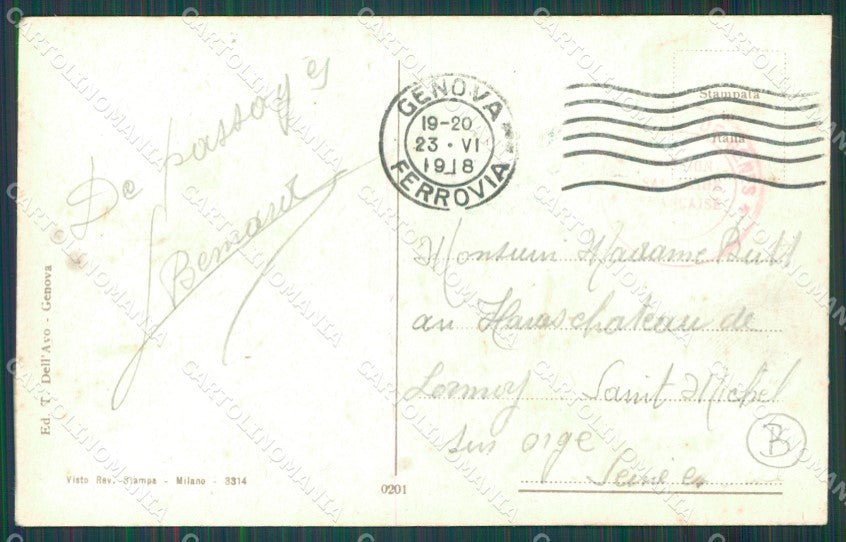 De passag es
Bernard
GENOVA
19-20
23·VI
1918
FERROVIA
Stampata
in
Italia
Monsieur Madame Butt
au Haras chateau de
Lormoy Saint Michel
sur orge
Seine
B
Ed. T. Dell'Avo - Genova
Visto Rev. Stampa - Milano - 3314
0201
CARTOLINOMANIA